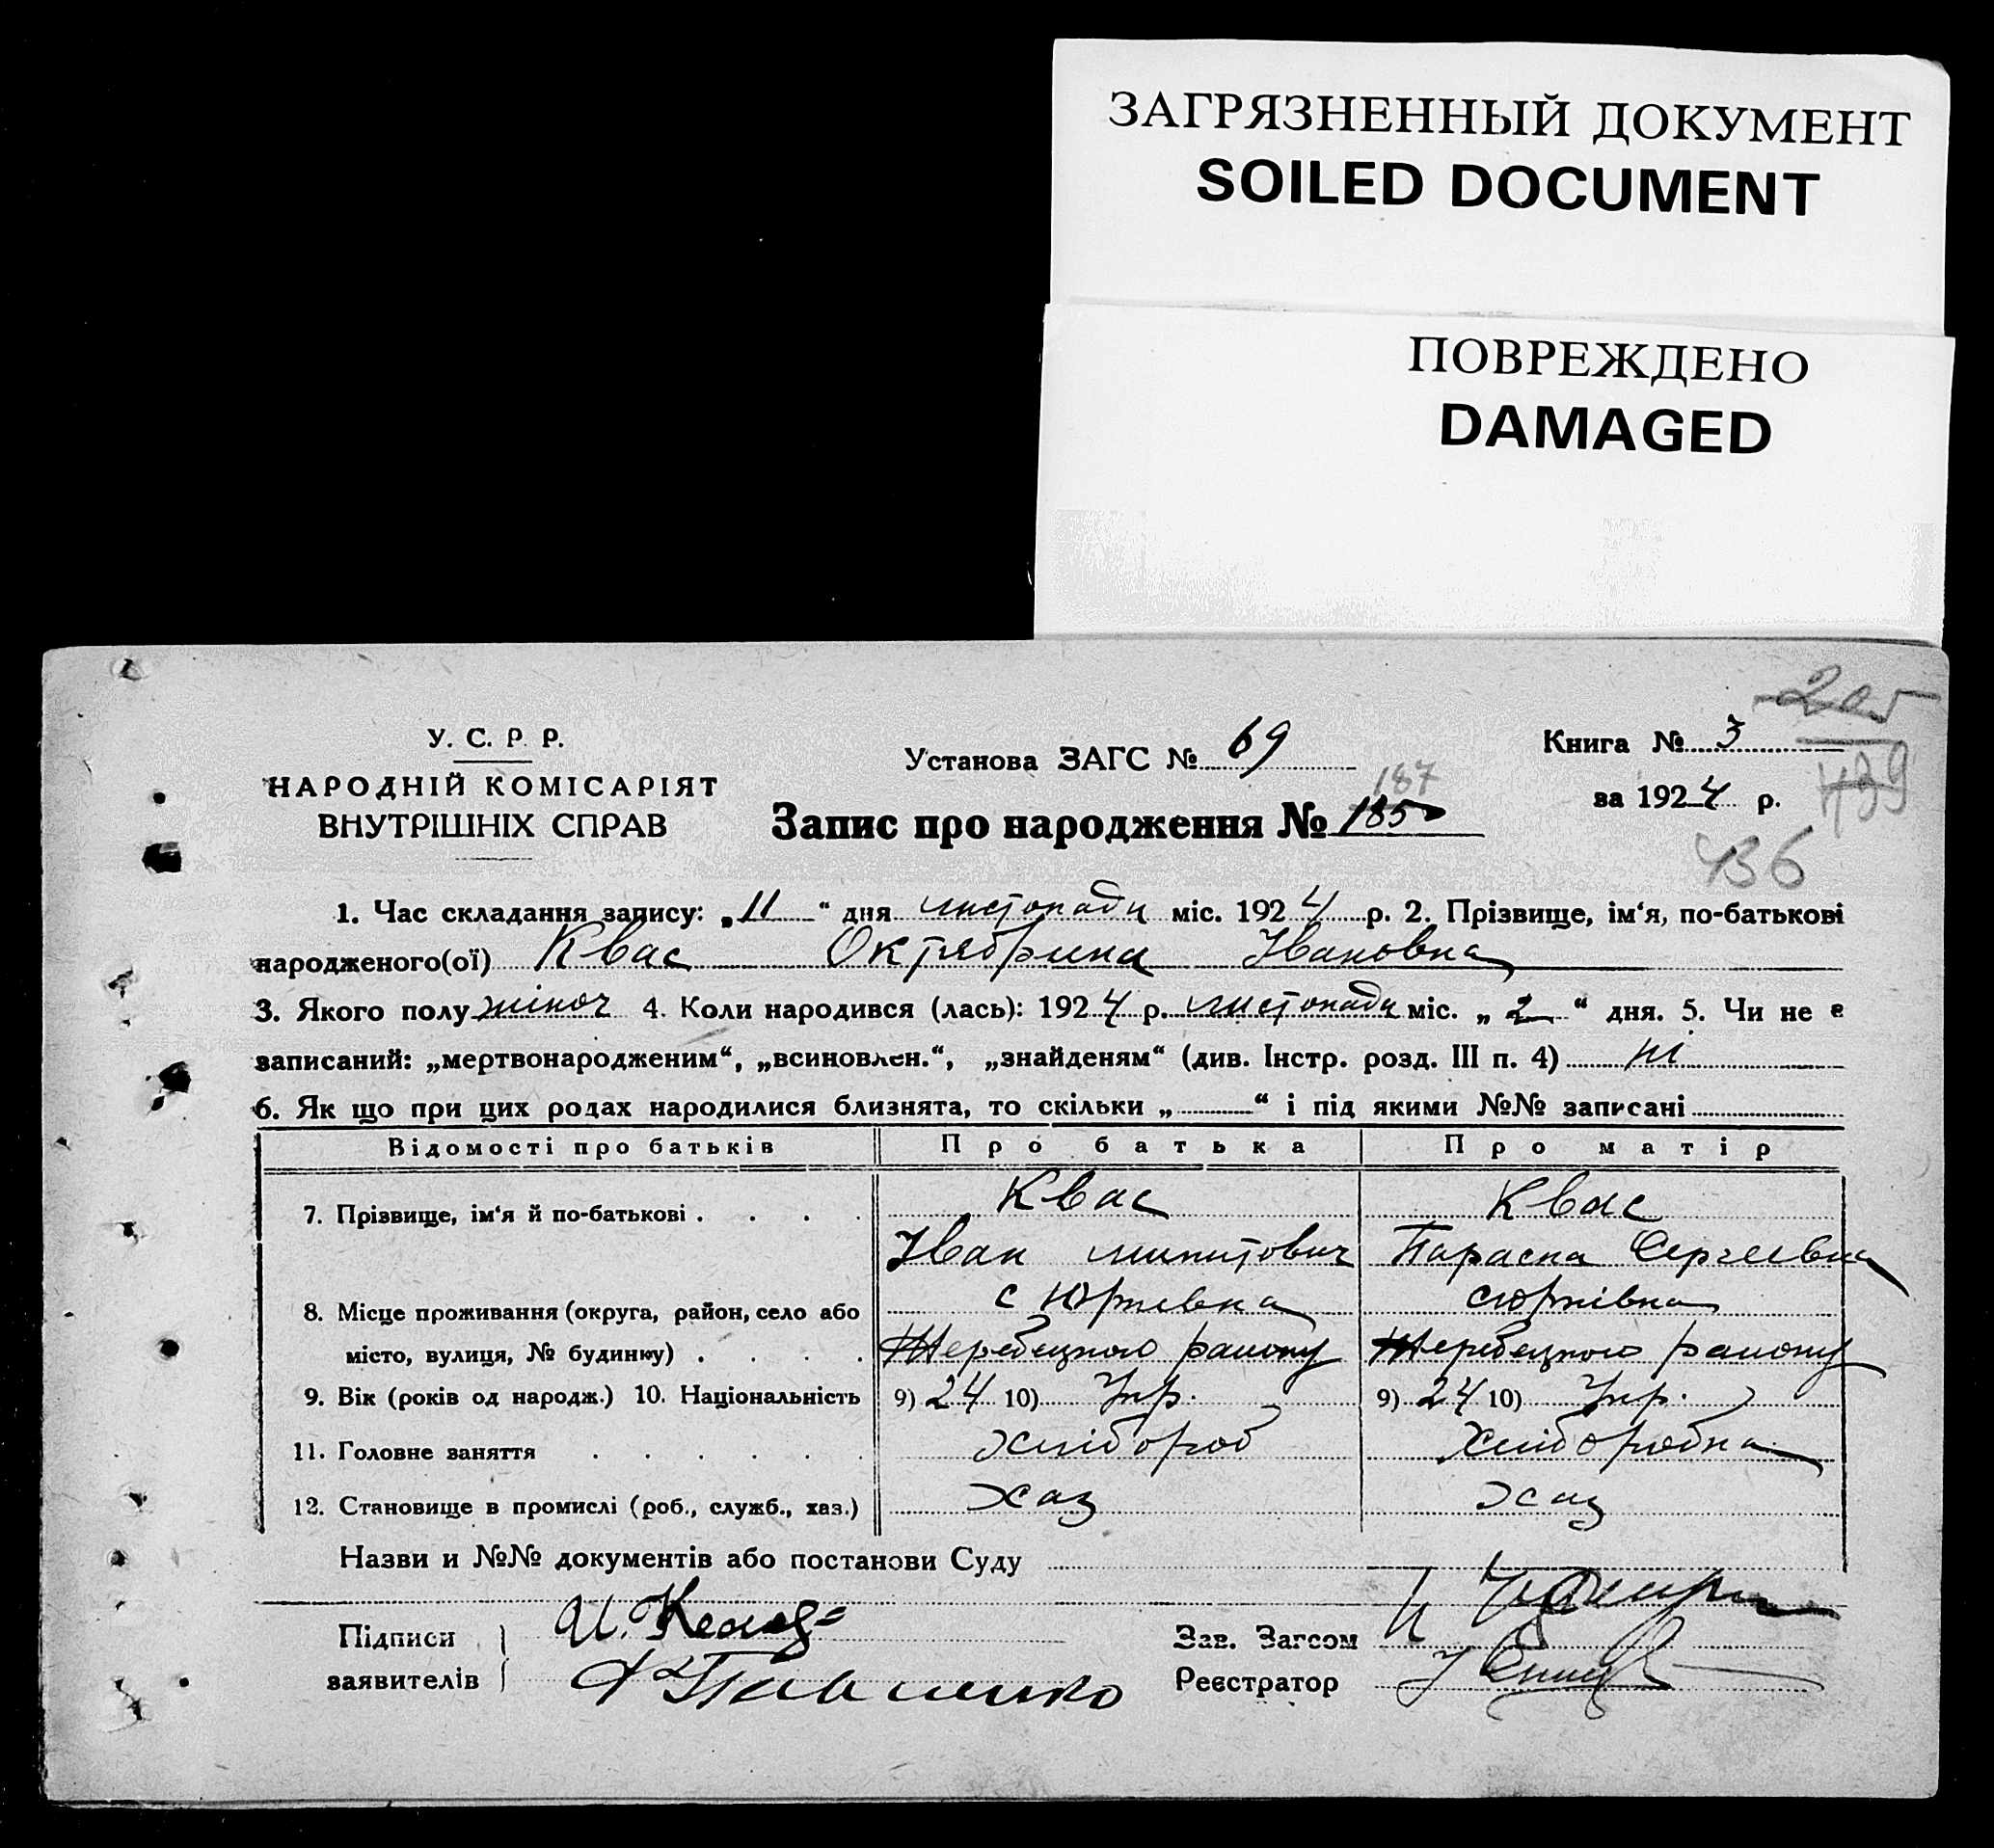 ЗАГРЯЗНЕННЫЙ ДОКУМЕНТ
SOILED DOCUMENT
ПОВРЕЖДЕНО
DAMAGED
У. С. Р. Р.
НАРОДНІЙ КОМІСАРІЯТ
ВНУТРІШНІХ СПРАВ
Установа ЗАГС № 69
187
Запис про народження № 185
Книга № 3
за 1924 р.
205
439
436
1. Час складання запису: „11“ дня листопаду міс. 1924 р. 2. Прізвище, ім‘я, по-батькові
народженого(ої) Квас Октябрина Івановна
3. Якого полу жіноч 4. Коли народився (лась): 1924 р. листопаду міс. „2“ дня. 5. Чи не є
записаний: „мертвонародженим“, „всиновлен.“, „знайденям“ (див. Інстр. розд. III п. 4) ні
6. Як що при цих родах народилися близнята, то скільки „ “ і під якими №№ записані
Відомості про батьків Про батька Про матір
7. Прізвище, ім‘я й по-батькові Квас Квас
Іван Микитович Параска Сергеевна
8. Місце проживання (округа, район, село або с Юрківка с Юрківка
місто, вулиця, № будинку) Жеребецкого району Жеребецкого району
9. Вік (років од народж.) 10. Національність 9) 24 10) Укр. 9) 24 10) Укр.
11. Головне заняття Хлібороб Хлібородка
12. Становище в промислі (роб., служб., хаз.) Хаз Хаз
Назви и №№ документів або постанови Суду
Підписи И. Квас Зав. Загсом
заявителів Павленко Реєстратор